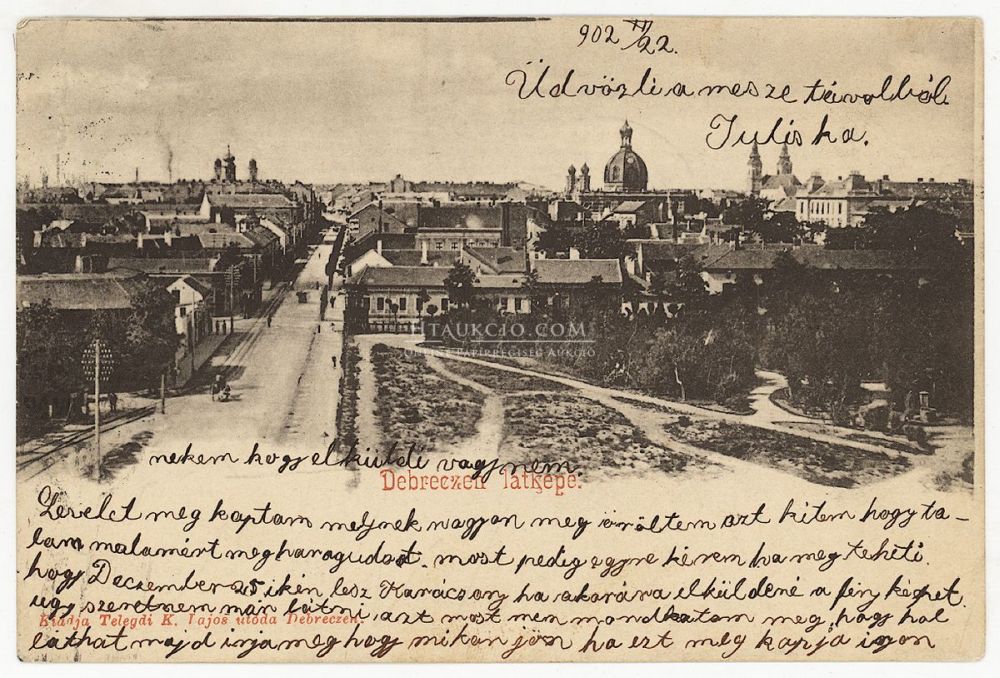 902 VI/22.
Üdvözli a mesze távolból
Juliska.
HTAUKCIO.COM
ONLINE PAPÍRRÉGISÉG AUKCIÓ
nekem hogy elküldi vagy nem.
Debreczen látképe.
Levelet meg kaptam melynek nagyon meg örültem azt hitem hogy ta-
lam malamért megharagudot. most pedig egyre kérem ha meg teheti.
hogy Deczember 25 ikén lesz Karácsony ha akarára elküldené a fény képet.
ugy szeretném mán látni azt most men mondhatom meg, hogy hol
Kiadja Telegdi K. Lajos utóda Debreczen.
láthat majd irja meg hogy mikor jön ha ezt meg kapja irjon